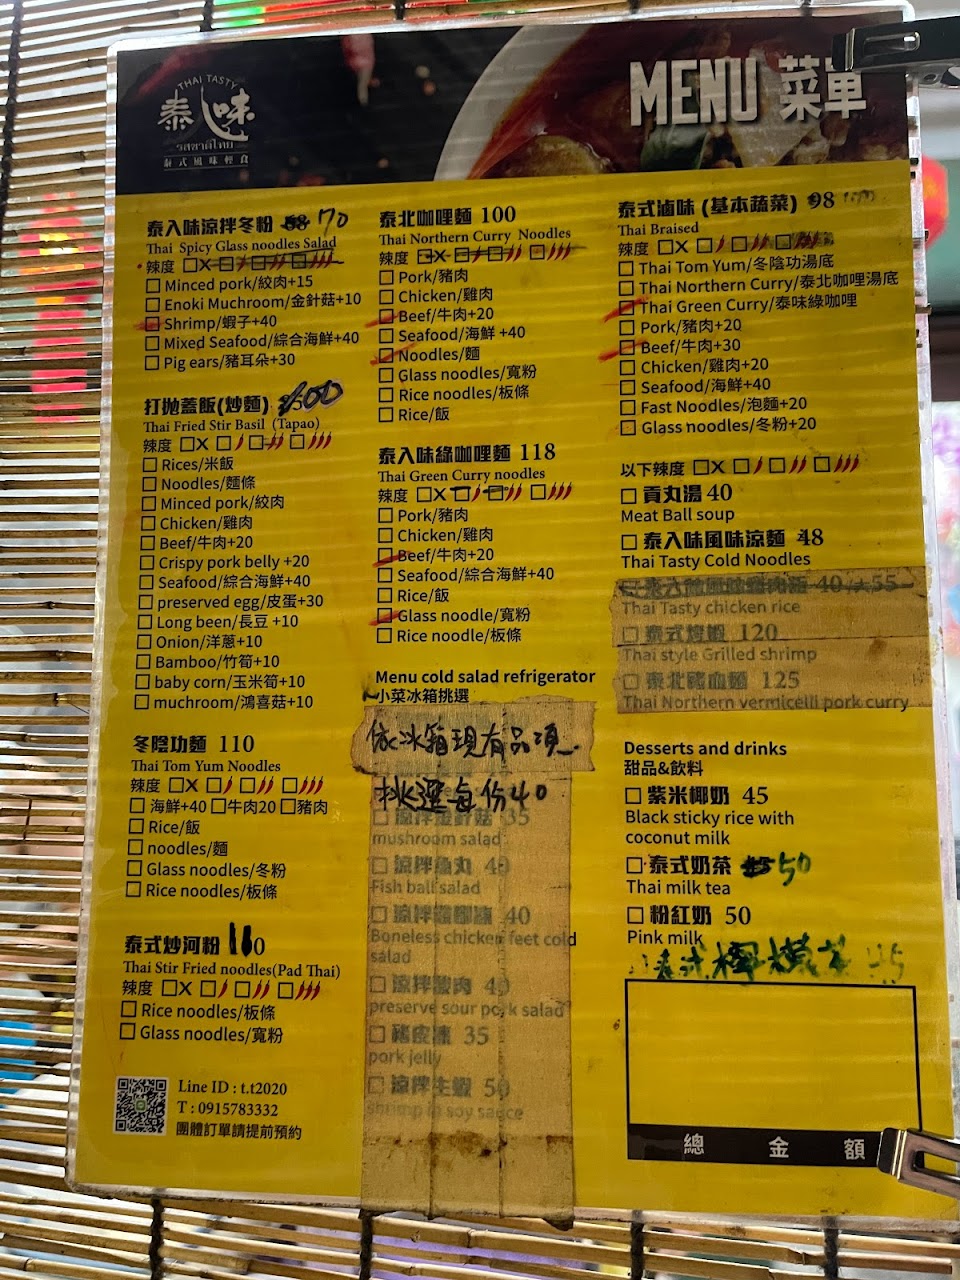 THAI TASTY
泰入味
รสชาติไทย
泰式風味輕食
MENU 菜單
泰入味涼拌冬粉 70
Thai Spicy Glass noodles Salad
辣度 □X □ □ □
□ Minced pork/絞肉+15
□ Enoki Muchroom/金針菇+10
□ Shrimp/蝦子+40
□ Mixed Seafood/綜合海鮮+40
□ Pig ears/豬耳朵+30
打拋蓋飯(炒麵)
Thai Fried Stir Basil (Tapao)
辣度 □X □ □ □
□ Rices/米飯
□ Noodles/麵條
□ Minced pork/絞肉
□ Chicken/雞肉
□ Beef/牛肉+20
□ Crispy pork belly +20
□ Seafood/綜合海鮮+40
□ preserved egg/皮蛋+30
□ Long been/長豆 +10
□ Onion/洋蔥+10
□ Bamboo/竹筍+10
□ baby corn/玉米筍+10
□ muchroom/鴻喜菇+10
冬陰功麵 110
Thai Tom Yum Noodles
辣度 □X □ □ □
□ 海鮮+40 □牛肉20 □豬肉
□ Rice/飯
□ noodles/麵
□ Glass noodles/冬粉
□ Rice noodles/板條
泰式炒河粉 110
Thai Stir Fried noodles(Pad Thai)
辣度 □X □ □ □
□ Rice noodles/板條
□ Glass noodles/寬粉
Line ID : t.t2020
T : 0915783332
團體訂單請提前預約
泰北咖哩麵 100
Thai Northern Curry Noodles
辣度 □X □ □ □
□ Pork/豬肉
□ Chicken/雞肉
□ Beef/牛肉+20
□ Seafood/海鮮 +40
□ Noodles/麵
□ Glass noodles/寬粉
□ Rice noodles/板條
□ Rice/飯
泰入味綠咖哩麵 118
Thai Green Curry noodles
辣度 □X □ □ □
□ Pork/豬肉
□ Chicken/雞肉
□ Beef/牛肉+20
□ Seafood/綜合海鮮+40
□ Rice/飯
□ Glass noodle/寬粉
□ Rice noodle/板條
Menu cold salad refrigerator
小菜冰箱挑選
依冰箱現有品項
挑選每份40
□ 涼拌金針菇 35
mushroom salad
□ 涼拌魚丸 40
Fish ball salad
□ 涼拌 40
Boneless chicken feet cold
salad
□ 涼拌酸肉 40
preserve sour pork salad
□ 豬皮凍 35
pork jelly
□ 涼拌生蝦 50
shrimp in soy sauce
泰式滷味 (基本蔬菜) 98
Thai Braised
辣度 □X □ □ □
□ Thai Tom Yum/冬陰功湯底
□ Thai Northern Curry/泰北咖哩湯底
□ Thai Green Curry/泰味綠咖哩
□ Pork/豬肉+20
□ Beef/牛肉+30
□ Chicken/雞肉+20
□ Seafood/海鮮+40
□ Fast Noodles/泡麵+20
□ Glass noodles/冬粉+20
以下辣度 □X □ □ □
□ 貢丸湯 40
Meat Ball soup
□ 泰入味風味涼麵 48
Thai Tasty Cold Noodles
□ 泰入味風味雞肉飯 40/大55
Thai Tasty chicken rice
□ 泰式烤蝦 120
Thai style Grilled shrimp
□ 泰北豬血麵 125
Thai Northern vermicelli pork curry
Desserts and drinks
甜品&飲料
□ 紫米椰奶 45
Black sticky rice with
coconut milk
□ 泰式奶茶 50
Thai milk tea
□ 粉紅奶 50
Pink milk
泰式檸檬茶 45
總 金 額